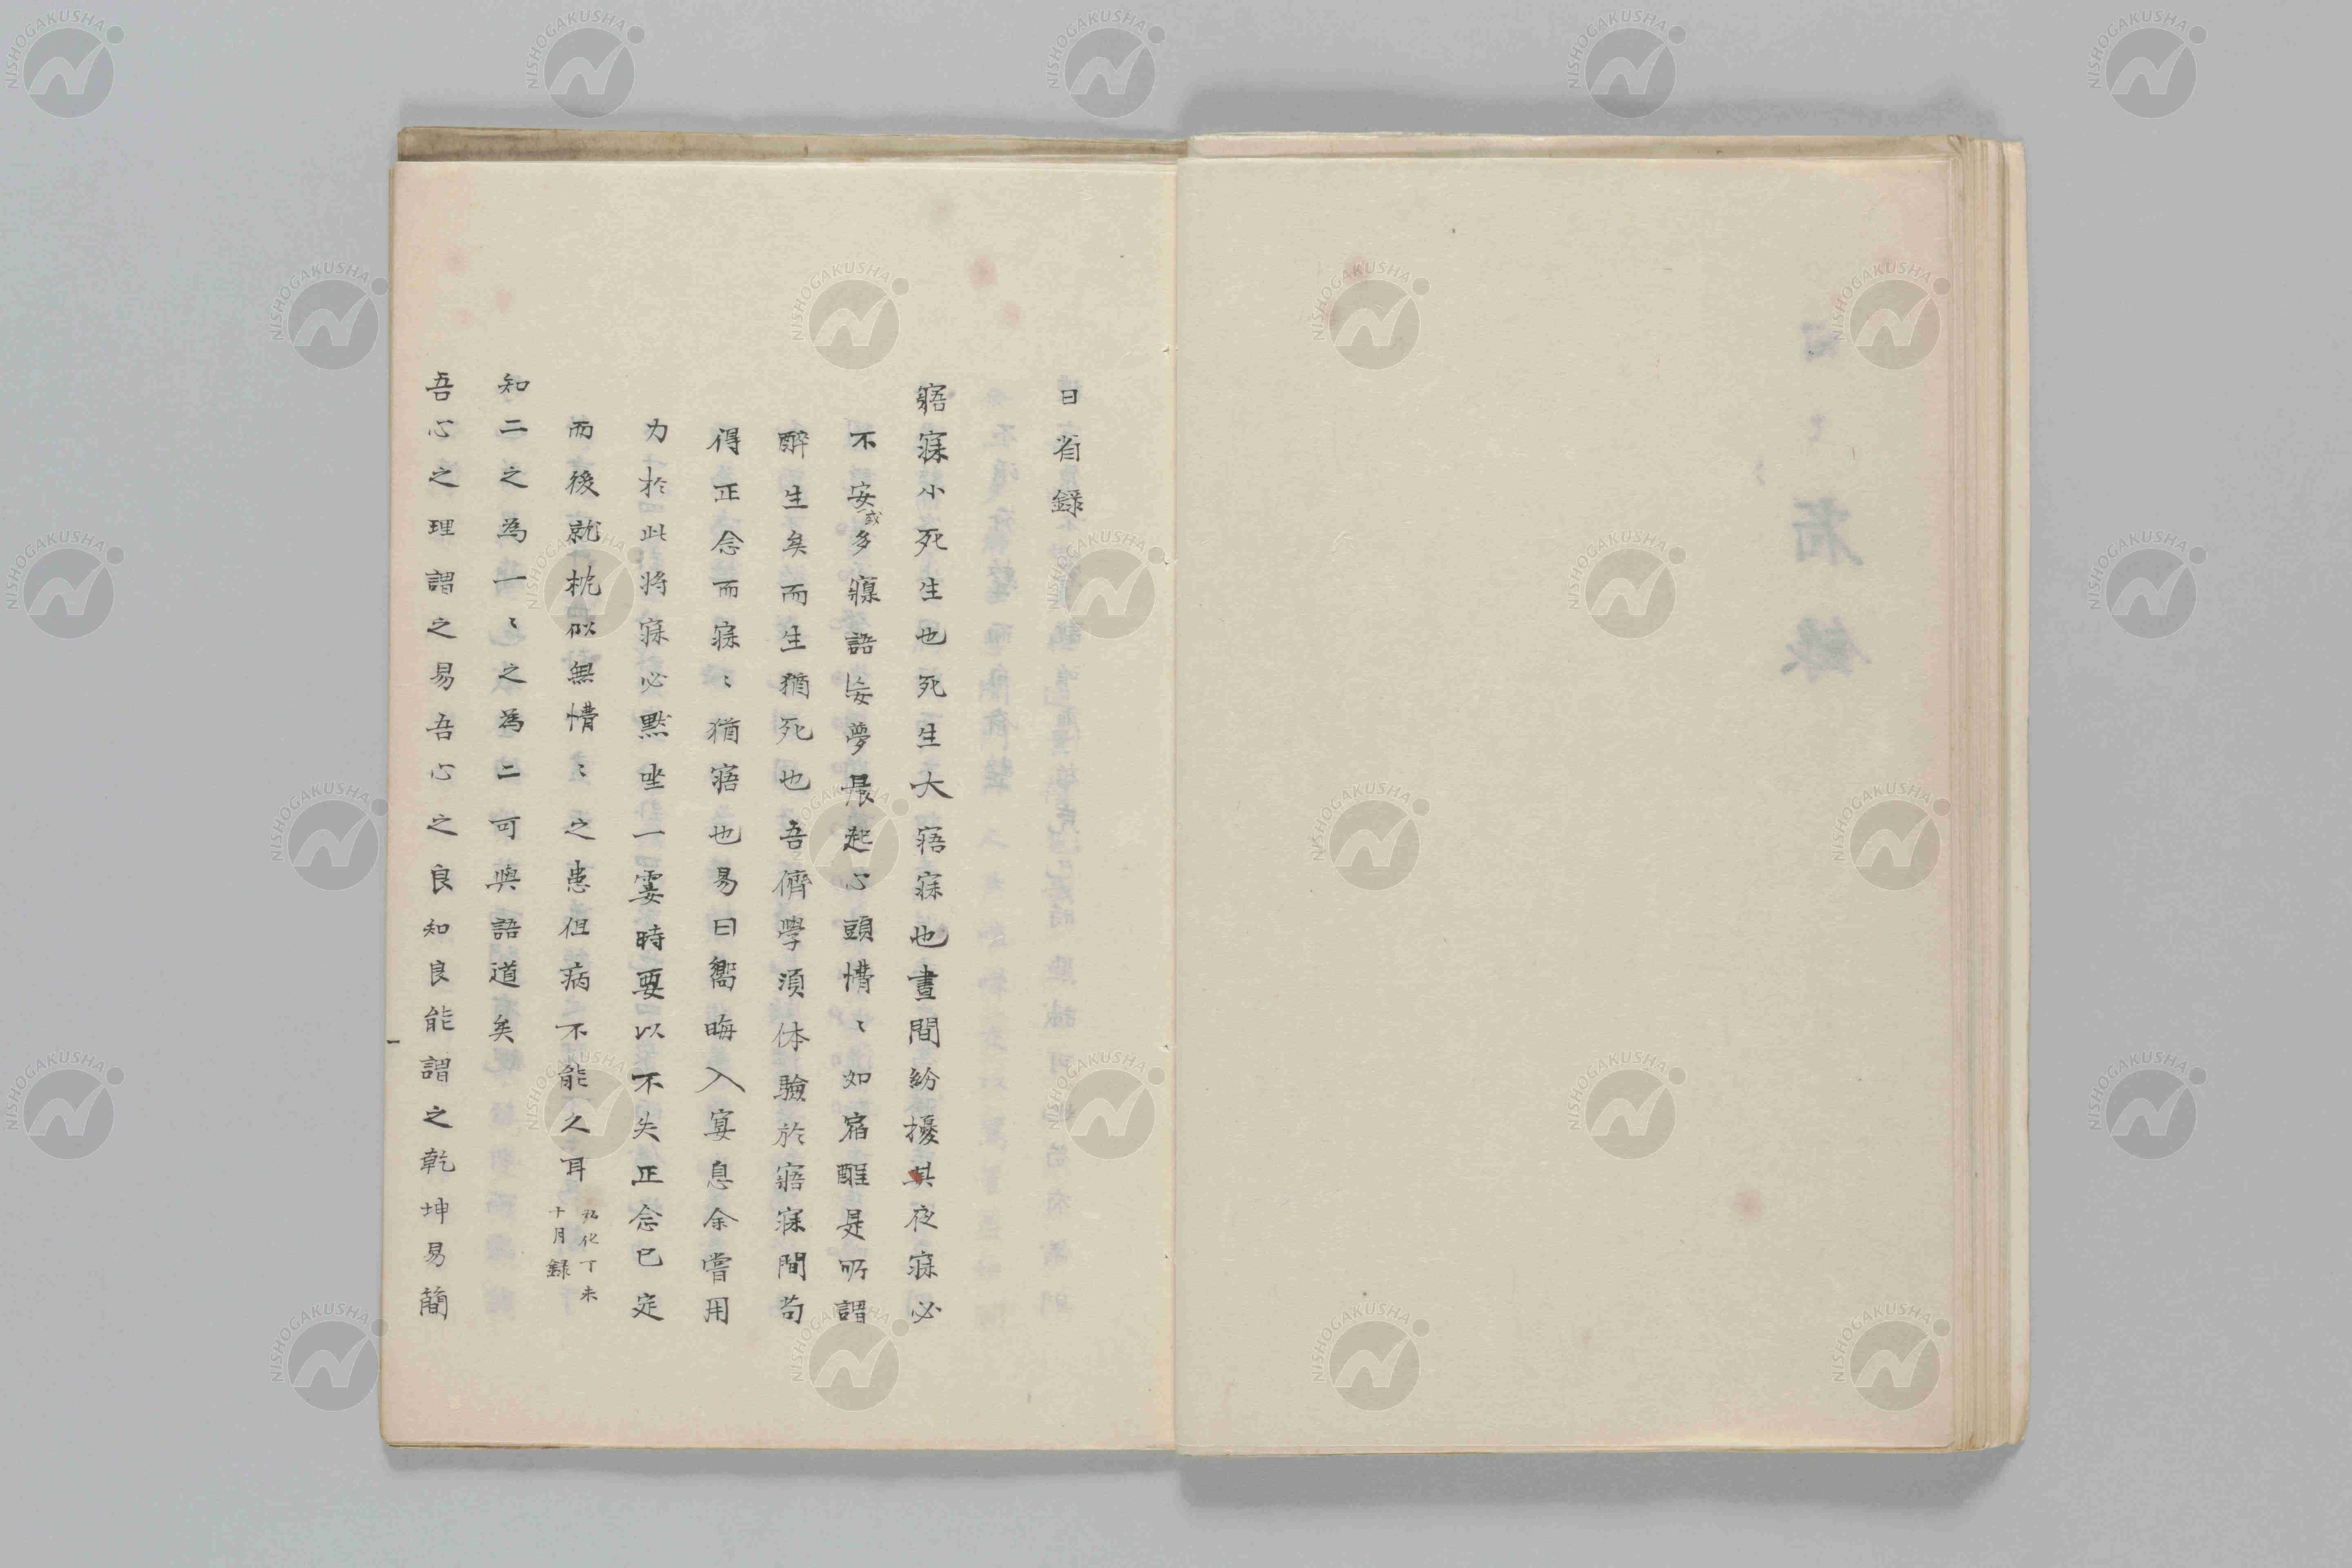 日省録
寤寐小死生也死生大寤寐也晝間紛擾其夜寐必
不安或多寱語妄夢晨起心頭慒〻如宿酲是所謂
醉生矣而生猶死也吾儕學須体驗於寤寐間苟
得正念而寐〻猶寤也易曰嚮晦入宴息余嘗用
力於此將寐必黙坐一霎時要以不失正念已定
而後就枕似無慒〻之患但病不能久耳弘化丁未
十月録
知二之為一〻之為二可與語道矣
吾心之理謂之易吾心之良知良能謂之乾坤易簡